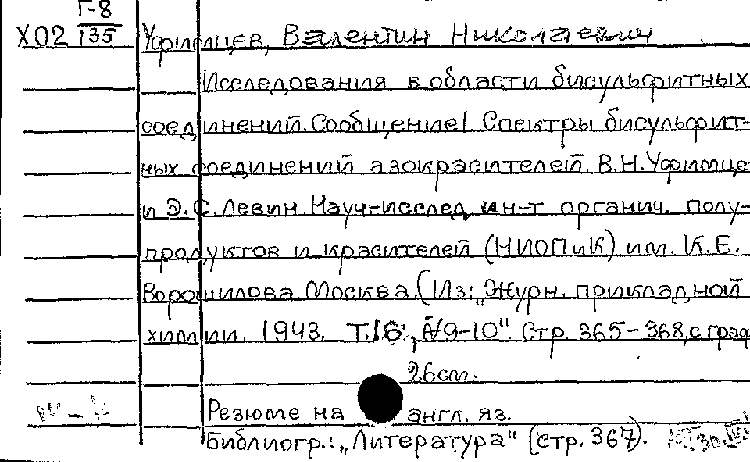 Г-8
Х02 135 Уфимцев, Валентин Николаевич
Исследования в области бисульфитных
соединений. Сообщение I Спектры бисульфит-
ных соединений азокрасителей В.Н. Уфимце
и Э.С. Левин. Науч-исслед. ин-т органич. полу-
продуктов и красителей (НИОПиК) им. К.Е.
Ворошилова Москва (Из: „Журн. прикладной
химии. 1943. Т.16, №9-10". Стр. 365-368, с граф
26см.
Резюме на англ. яз.
Библиогр.: „Литература" (стр. 367).